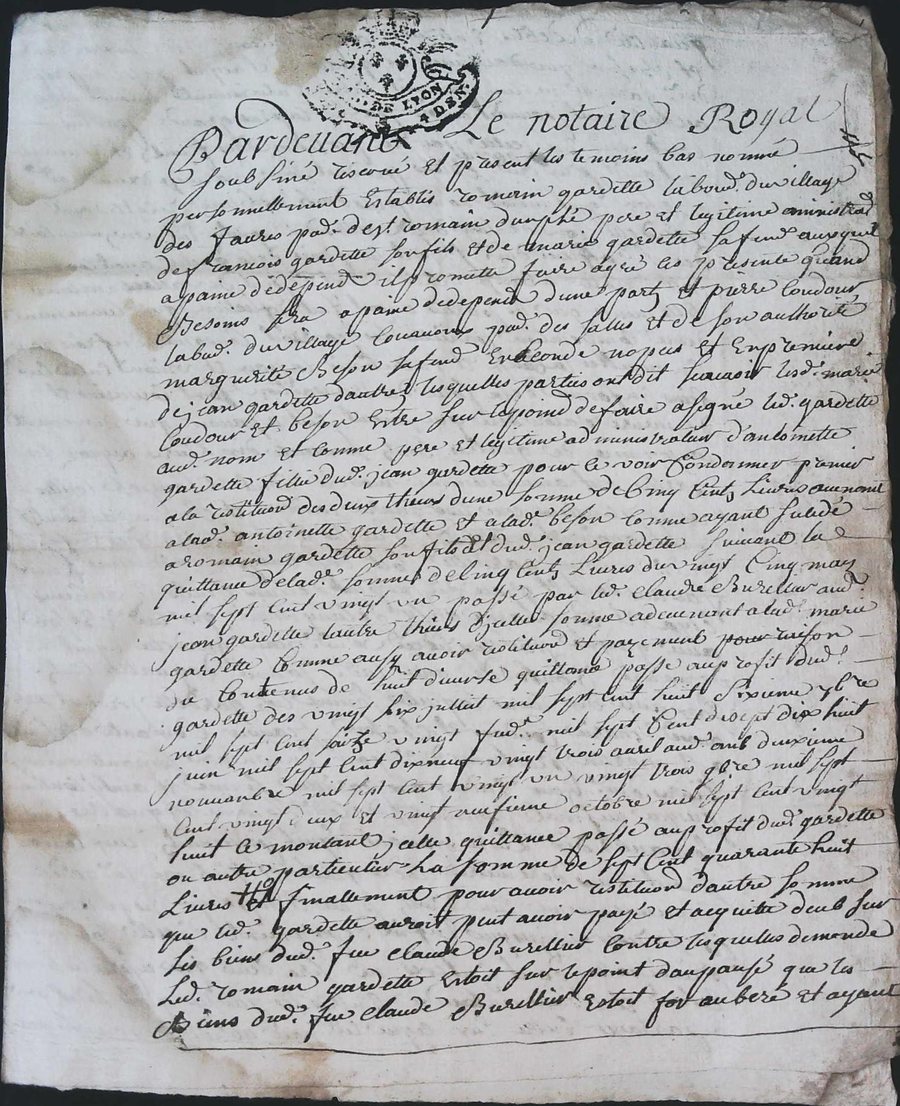 DE LYON
4 DEN.
Pardevant Le notaire Royal
soubsiné reservé et present les temoins bas nommé
personnellement Establis romain gardette labour. du village
des faures par. de st. romain durphé pere et legitime administrat
de francois gardette son fils et de marie gardette sa fem. auxquel
a paine de depend il promettre faire agré les presente quand
Besoins sera a paine de depend d'une part, et pierre Coudour
labour. du village par. des salles et de son authorité
marguerite Beson sa fem. En seconde nopces et En premiere
de jean gardette d'autre, lesquelles parties ont dit scavoir lesd. marie
Coudour et beson Estre sur le point de faire asigné led. gardette
aud. nom et comme pere et legitime administrateur d'antoinette
gardette fille dud. jean gardette pour ce voir Condanner premier
a la restitution des deux thiers d'une somme de Cinq Cent, Livres avenant
a lad. antoinette gardette et a lad. beson comme ayant sucedé
a romain gardette son fils et dud. jean gardette suivant la
quittance de lad. somme de Cinq Cent, Livres du vingt Cinq may
mil sept Cent vingt un passé par led. Claude Burellier aud.
jean gardette l'autre thiers d'jcelle somme advenant a lad. marie
gardette Comme ausy avoir restitution et payement pour raison
du Contenus de huit diverse quittance passé au profit dud.
gardette des vingt six juillet mil sept cent huit Sixieme 7bre
mil sept Cent saize vingt fud. mil sept Cent disept dix huit
juin mil sept Cent dix neuf vingt trois avril aud. an deuxieme
novanbre mil sept Cent vingt un vingt trois 9bre mil sept
Cent vingt deux et vingt neufieme octobre mil sept Cent vingt
huit Ce montant jcelle quittance passé au profit dud. gardette
ou autre particulier La somme de sept Cent quarante huit
Livres finallement pour avoir restitution d'autre somme
que led. gardette auroit peut avoir payé et acquitté deub sur
Les bien dud. feu Claude Burellier Contre lesquelles demande
Led. romain gardette Estoit sur le point d'aupausé que les
Biens dud. feu Claude Burellier Estoit for auberé et ayant